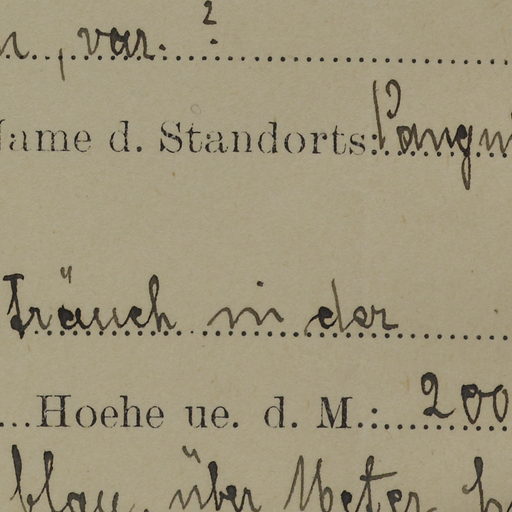 , var. ?
Name d. Standorts: Pangui
Sträuch in der
Hoehe ue. d. M.: 200
blau, über Meter h